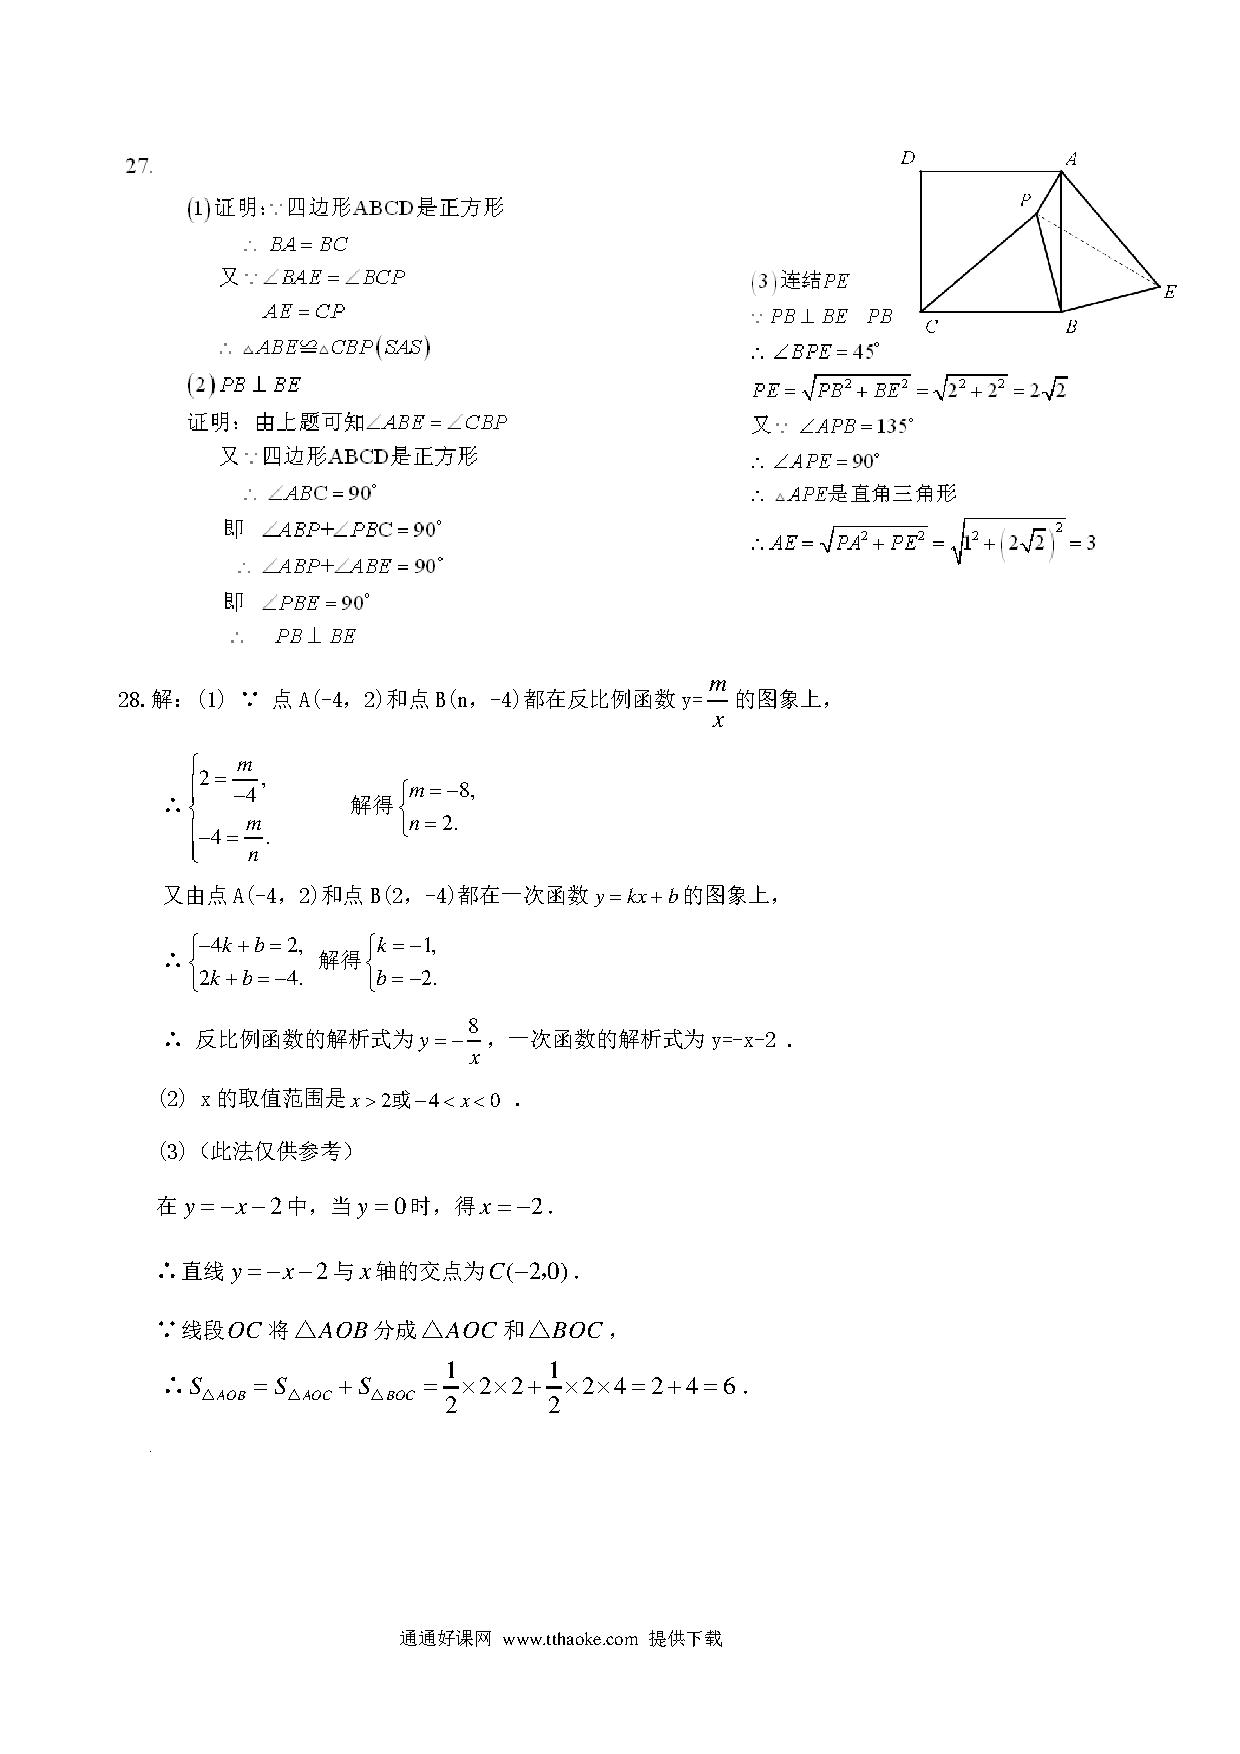 27.
(1)证明:∵四边形ABCD是正方形
∴ BA=BC
又∵∠BAE=∠BCP
AE=CP
∴ △ABE≌△CBP(SAS)
(2)PB⊥BE
证明：由上题可知∠ABE=∠CBP
又∵四边形ABCD是正方形
∴ ∠ABC=90°
即 ∠ABP+∠PBC=90°
∴ ∠ABP+∠ABE=90°
即 ∠PBE=90°
∴ PB⊥BE
D
A
P
E
C
B
(3)连结PE
∵ PB⊥BE PB
∴ ∠BPE=45°
PE=√(PB²+BE²)=√(2²+2²)=2√2
又∵ ∠APB=135°
∴ ∠APE=90°
∴ △APE是直角三角形
∴AE=√(PA²+PE²)=√(1²+(2√2)²)=3
28.解：(1) ∵ 点A(-4，2)和点B(n，-4)都在反比例函数y=m/x的图象上，
∴{2=m/-4, -4=m/n. 解得{m=-8, n=2.
又由点A(-4，2)和点B(2，-4)都在一次函数y=kx+b的图象上，
∴{-4k+b=2, 2k+b=-4. 解得{k=-1, b=-2.
∴ 反比例函数的解析式为y=-8/x，一次函数的解析式为y=-x-2 .
(2) x的取值范围是x>2或-4<x<0 .
(3)（此法仅供参考）
在y=-x-2中，当y=0时，得x=-2.
∴直线y=-x-2与x轴的交点为C(-2,0).
∵线段OC将△AOB分成△AOC和△BOC，
∴S△AOB=S△AOC+S△BOC=1/2×2×2+1/2×2×4=2+4=6.
通通好课网 www.tthaoke.com 提供下载